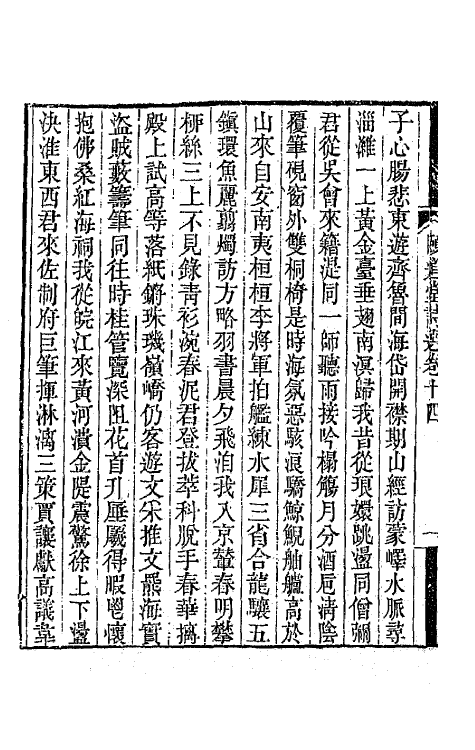 子心腸悲東遊齊魯間海岱開襟期山經訪蒙嶧水脈尋
淄濰一上黃金臺垂翅南溟歸我昔從琅嬛跳盪同僧彌
君從吳會來籍湜同一師聽雨接吟榻觴月分酒卮清陰
覆筆硯窗外雙桐椅是時海氛惡駭浪驕鯨鯢舳艫高於
山來自安南夷桓桓李將軍拍艦練水犀三省合龍驤五
鎮環魚麗翦燭訪方略羽書晨夕飛洎我入京輦春明攀
柳絲三上不見錄青衫涴春泥君登拔萃科脫手春華摛
殿上試高等落紙鏘珠璣嶺嶠仍客遊文采推文熊海寶
盜賊藪籌筆同往時桂管覽深阻花首升厜㕒得暇鬯懷
抱佛桑紅海祠我從皖江來黃河潰金隄震驚徐上下盪
決淮東西君來佐制府巨筆揮淋漓三策賈讓獻高議韋
堂詩選卷十四
一